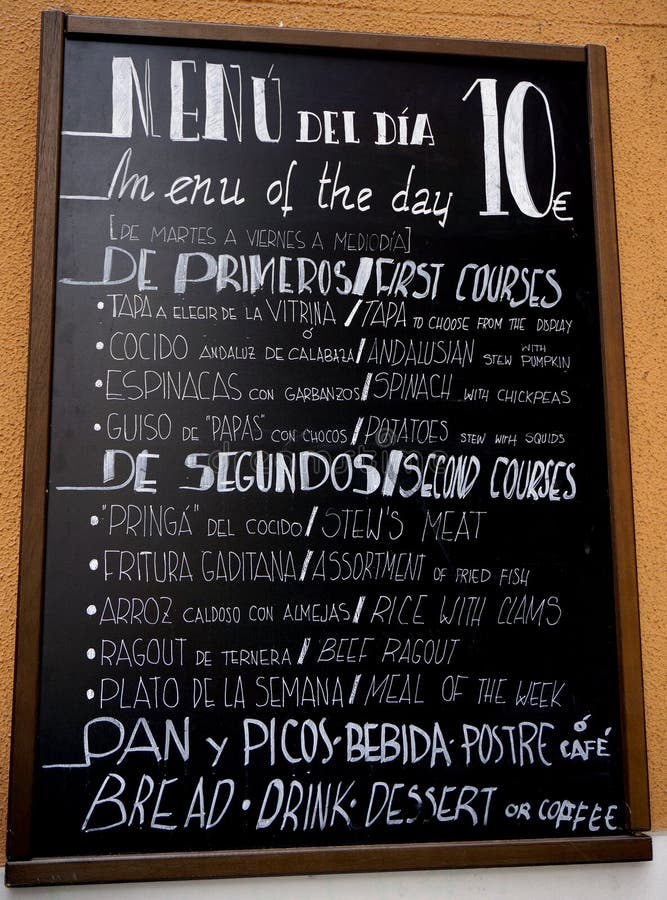 MENÚ DEL DÍA 10€
Menu of the day
[DE MARTES A VIERNES A MEDIODÍA]
DE PRIMEROS/FIRST COURSES
•TAPA A ELEGIR DE LA VITRINA/TAPA TO CHOOSE FROM THE DISPLAY
Ó
•COCIDO ANDALUZ DE CALABAZA/ANDALUSIAN STEW WITH PUMPKIN
•ESPINACAS CON GARBANZOS/SPINACH WITH CHICKPEAS
•GUISO DE "PAPAS" CON CHOCOS/POTATOES STEW WITH SQUIDS
DE SEGUNDOS/SECOND COURSES
•"PRINGÁ" DEL COCIDO/STEW'S MEAT
•FRITURA GADITANA/ASSORTMENT OF FRIED FISH
•ARROZ CALDOSO CON ALMEJAS/RICE WITH CLAMS
•RAGOUT DE TERNERA/BEEF RAGOUT
•PLATO DE LA SEMANA/MEAL OF THE WEEK
PAN y PICOS·BEBIDA·POSTRE Ó CAFÉ
BREAD·DRINK·DESSERT OR COFFEE